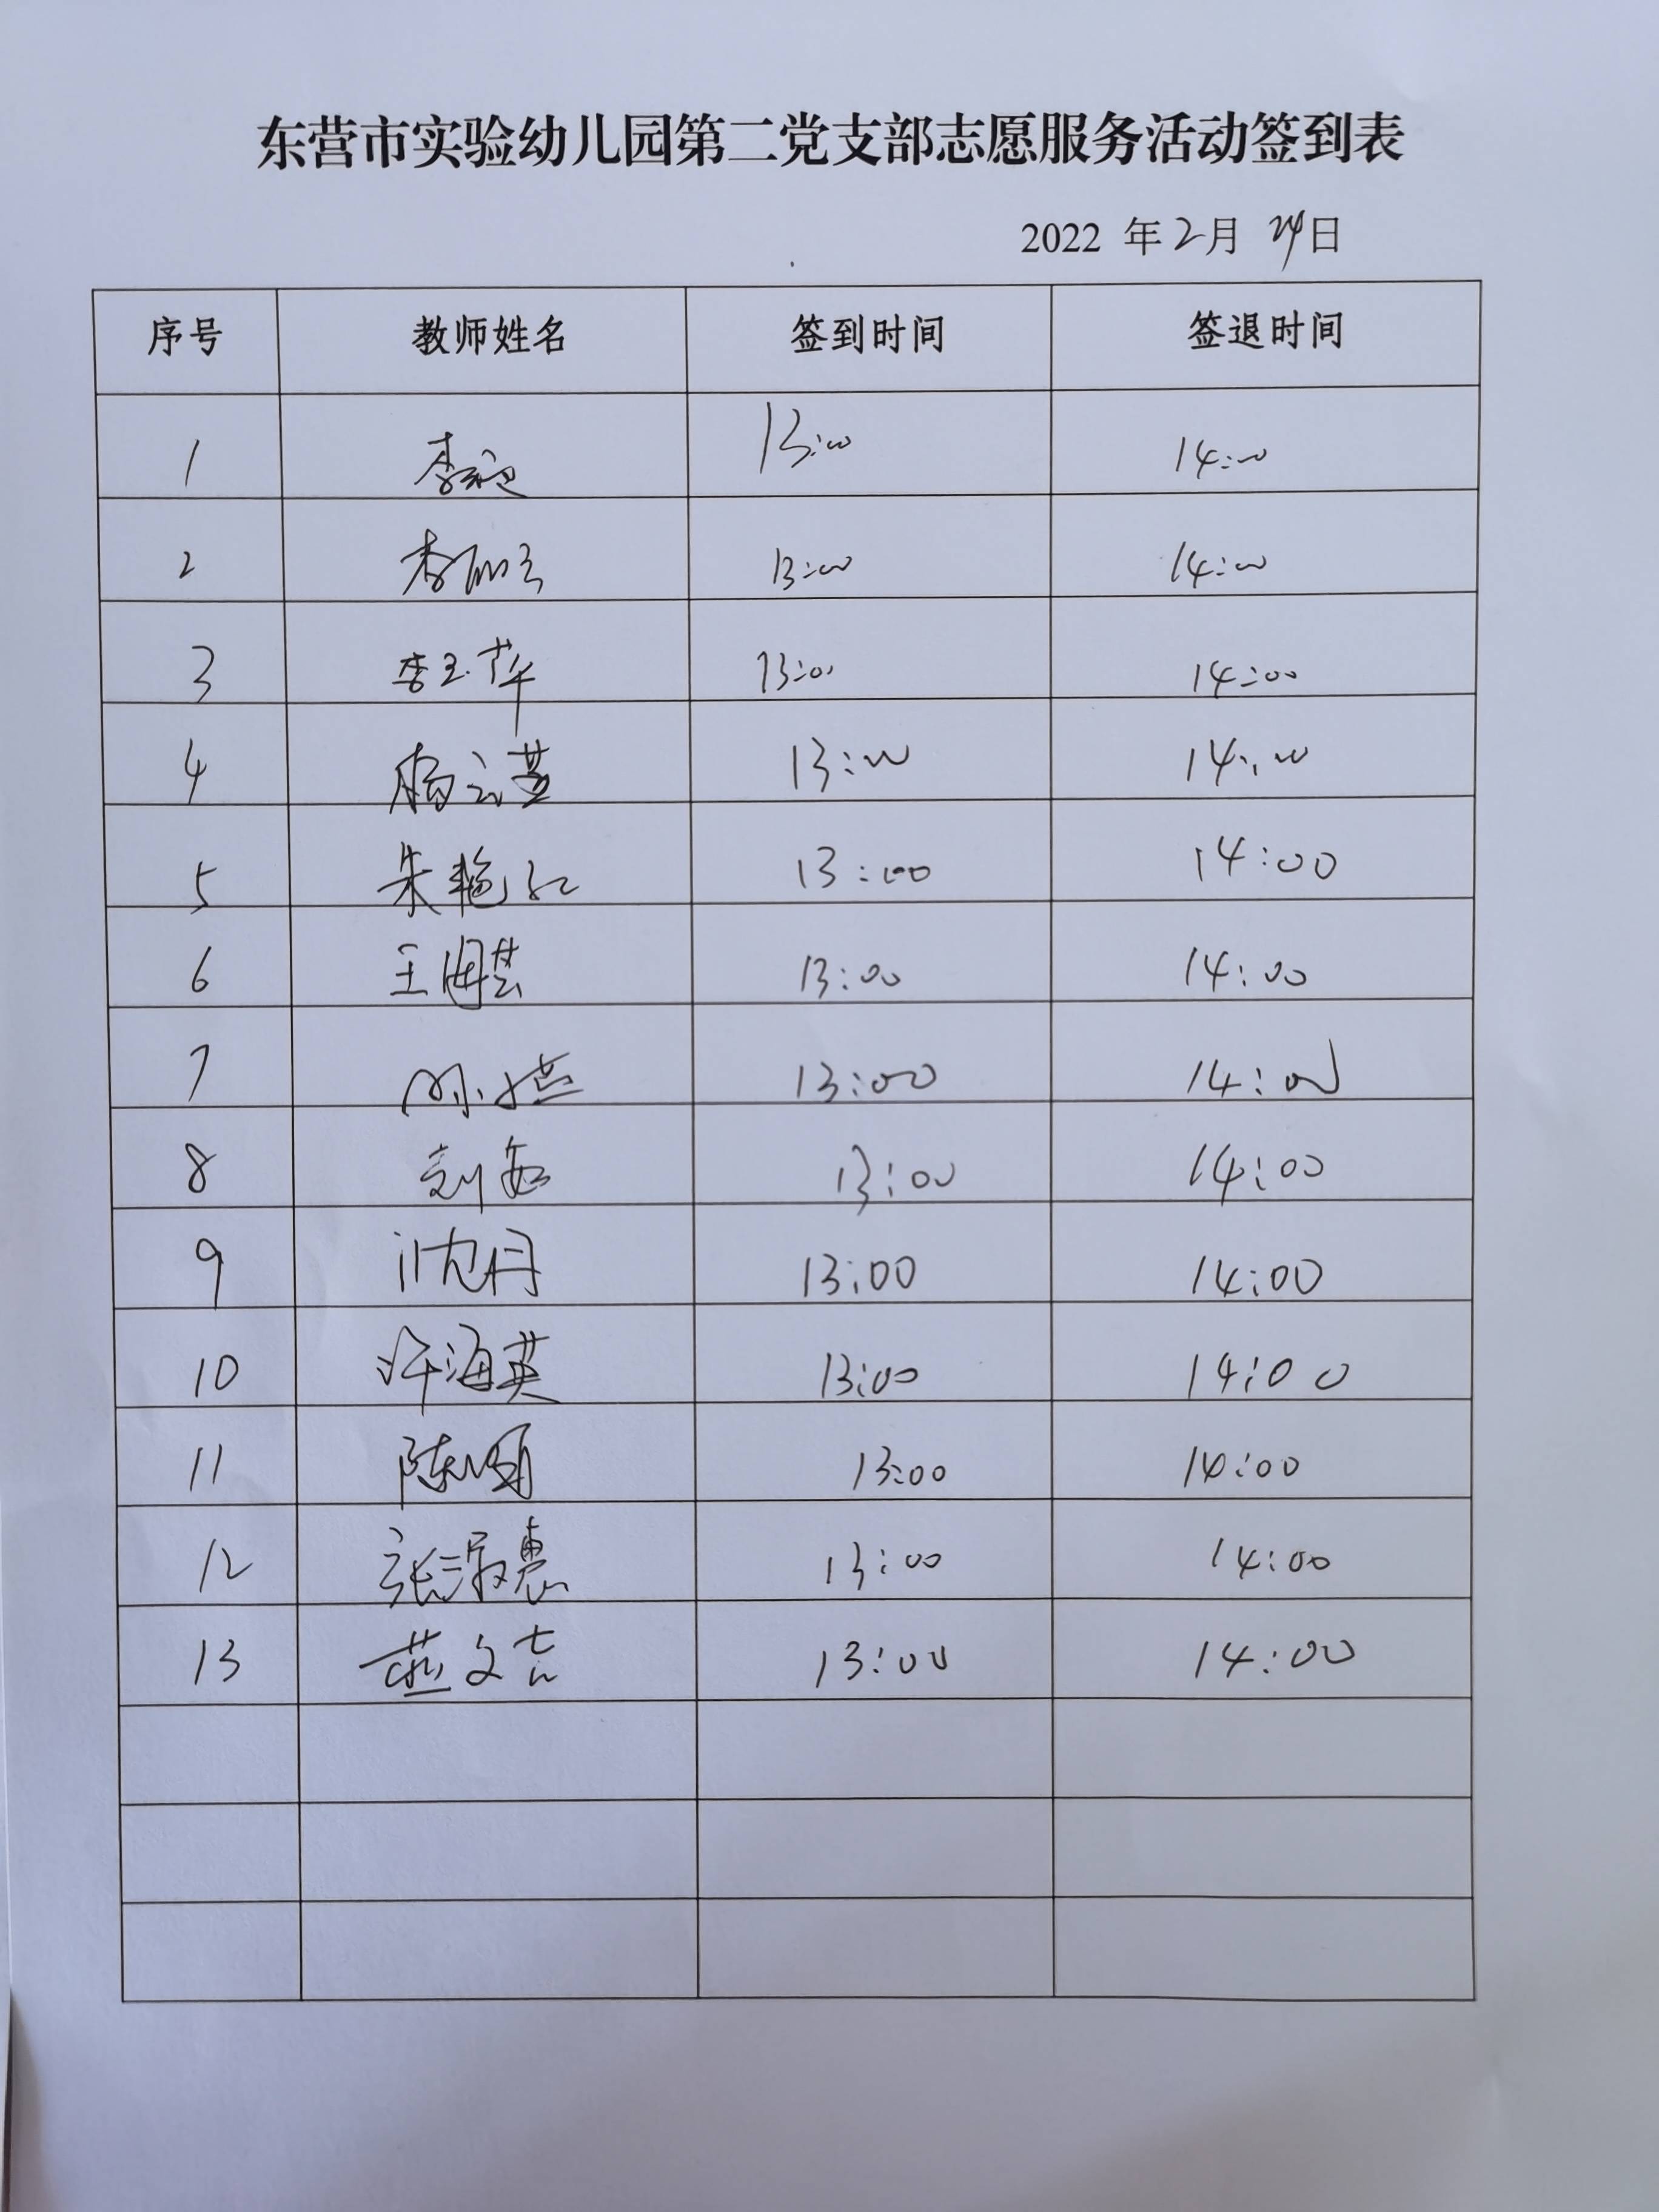 东营市实验幼儿园第二党支部志愿服务活动签到表
2022 年 2月 24日
序号 教师姓名 签到时间 签退时间
1 李 13:00 14:00
2 李丽云 13:00 14:00
3 李玉华 13:00 14:00
4 杨云燕 13:00 14:00
5 朱艳红 13:00 14:00
6 王海芸 13:00 14:00
7 13:00 14:00
8 刘 13:00 14:00
9 沈丹 13:00 14:00
10 许海英 13:00 14:00
11 陈颖 13:00 14:00
12 张淑惠 13:00 14:00
13 燕文吉 13:00 14:00